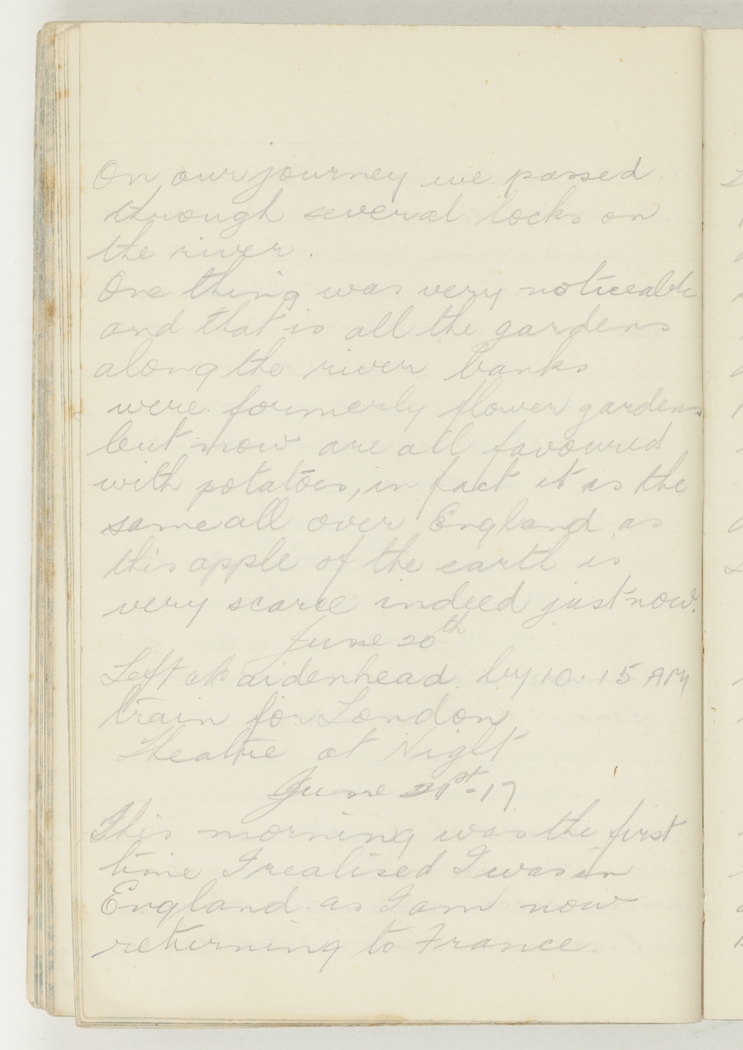 On our journey we passed
through several locks on
the river.
One thing was very noticeable
and that is all the gardens
along the river banks
were formerly flower gardens
but now are all favoured
with potatoes, in fact it is the
same all over England as
this apple of the earth is
very scarce indeed just now.
June 20th
Left Maidenhead by 10.15 AM
train for London
Theatre at Night
June 21st-17
This morning was the first
time I realised I was in
England as I am now
returning to France.